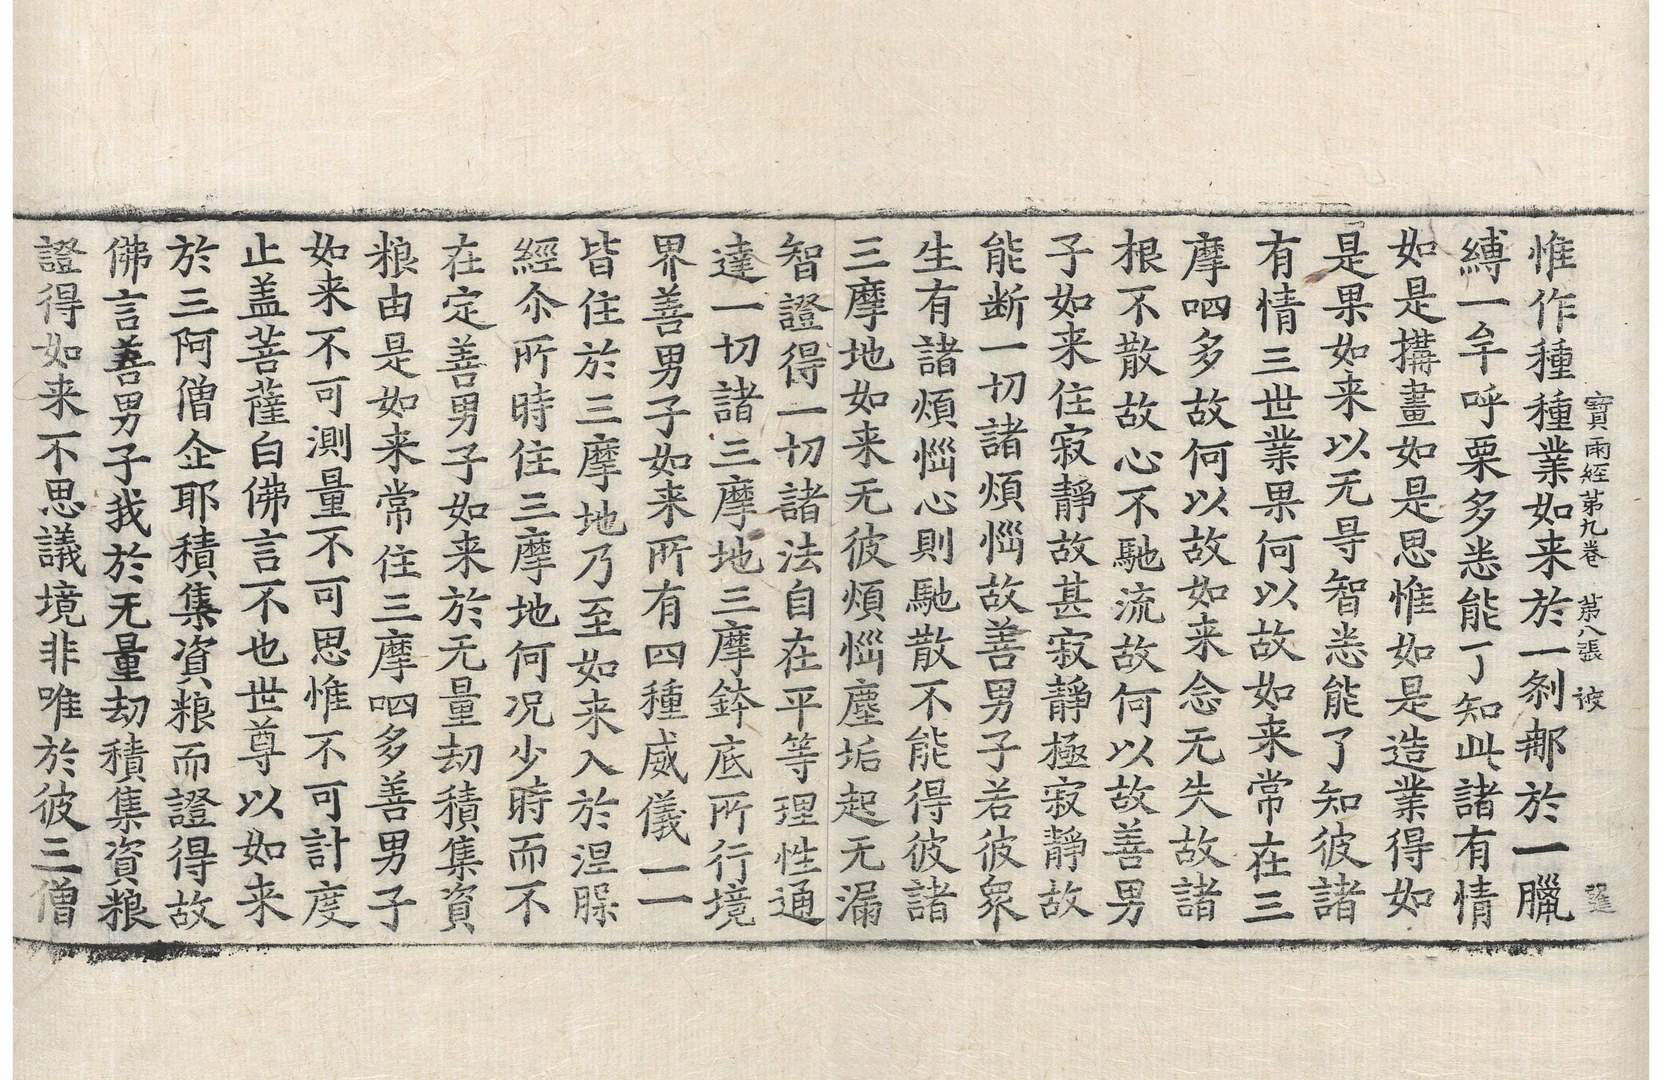 寶雨經第九卷 第八張 被
惟作種種業如来於一刹那於一臘
縛一牟呼栗多悉能了知此諸有情
如是搆畫如是思惟如是造業得如
是果如来以无㝵智悉能了知彼諸
有情三世業果何以故如来常在三
摩呬多故何以故如来念无失故諸
根不散故心不馳流故何以故善男
子如来住寂靜故甚寂靜極寂靜故
能断一切諸煩惱故善男子若彼衆
生有諸煩惱心則馳散不能得彼諸
三摩地如来无彼煩惱塵垢起无漏
智證得一切諸法自在平等理性通
達一切諸三摩地三摩鉢底所行境
界善男子如来所有四種威儀一一
皆住於三摩地乃至如来入於涅槃
經尒所時住三摩地何况少時而不
在定善男子如来於无量劫積集資
粮由是如来常住三摩呬多善男子
如来不可測量不可思惟不可計度
止盖菩薩白佛言不也世尊以如来
於三阿僧企耶積集資粮而證得故
佛言善男子我於无量劫積集資粮
證得如来不思議境非唯於彼三僧